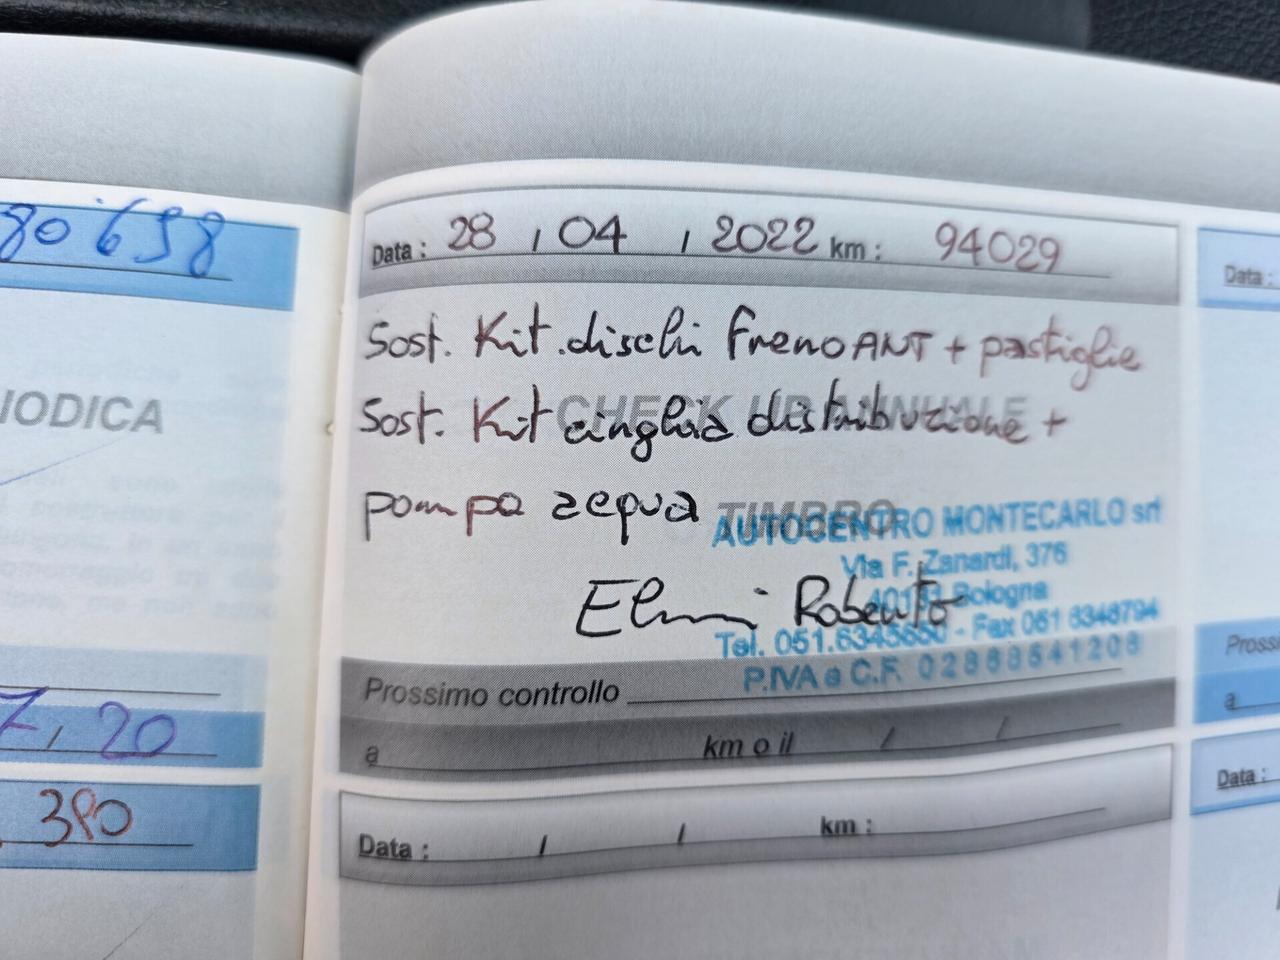 80.698
IODICA
7, 20
380
Data : 28 / 04 / 2022 km : 94029
Sost. Kit. dischi freno ANT + pastiglie
CHECK UP ANNUALE
Sost. Kit cinghia distribuzione +
pompa acqua
TIMBRO
AUTOCENTRO MONTECARLO srl
Via F. Zanardi, 376
Bologna
Roberto
Tel. 051.6345650 - Fax 051 6346794
P.IVA e C.F. 02868641208
Prossimo controllo
a km o il / /
Data : / / km :
Data :
Pross
a
Data :